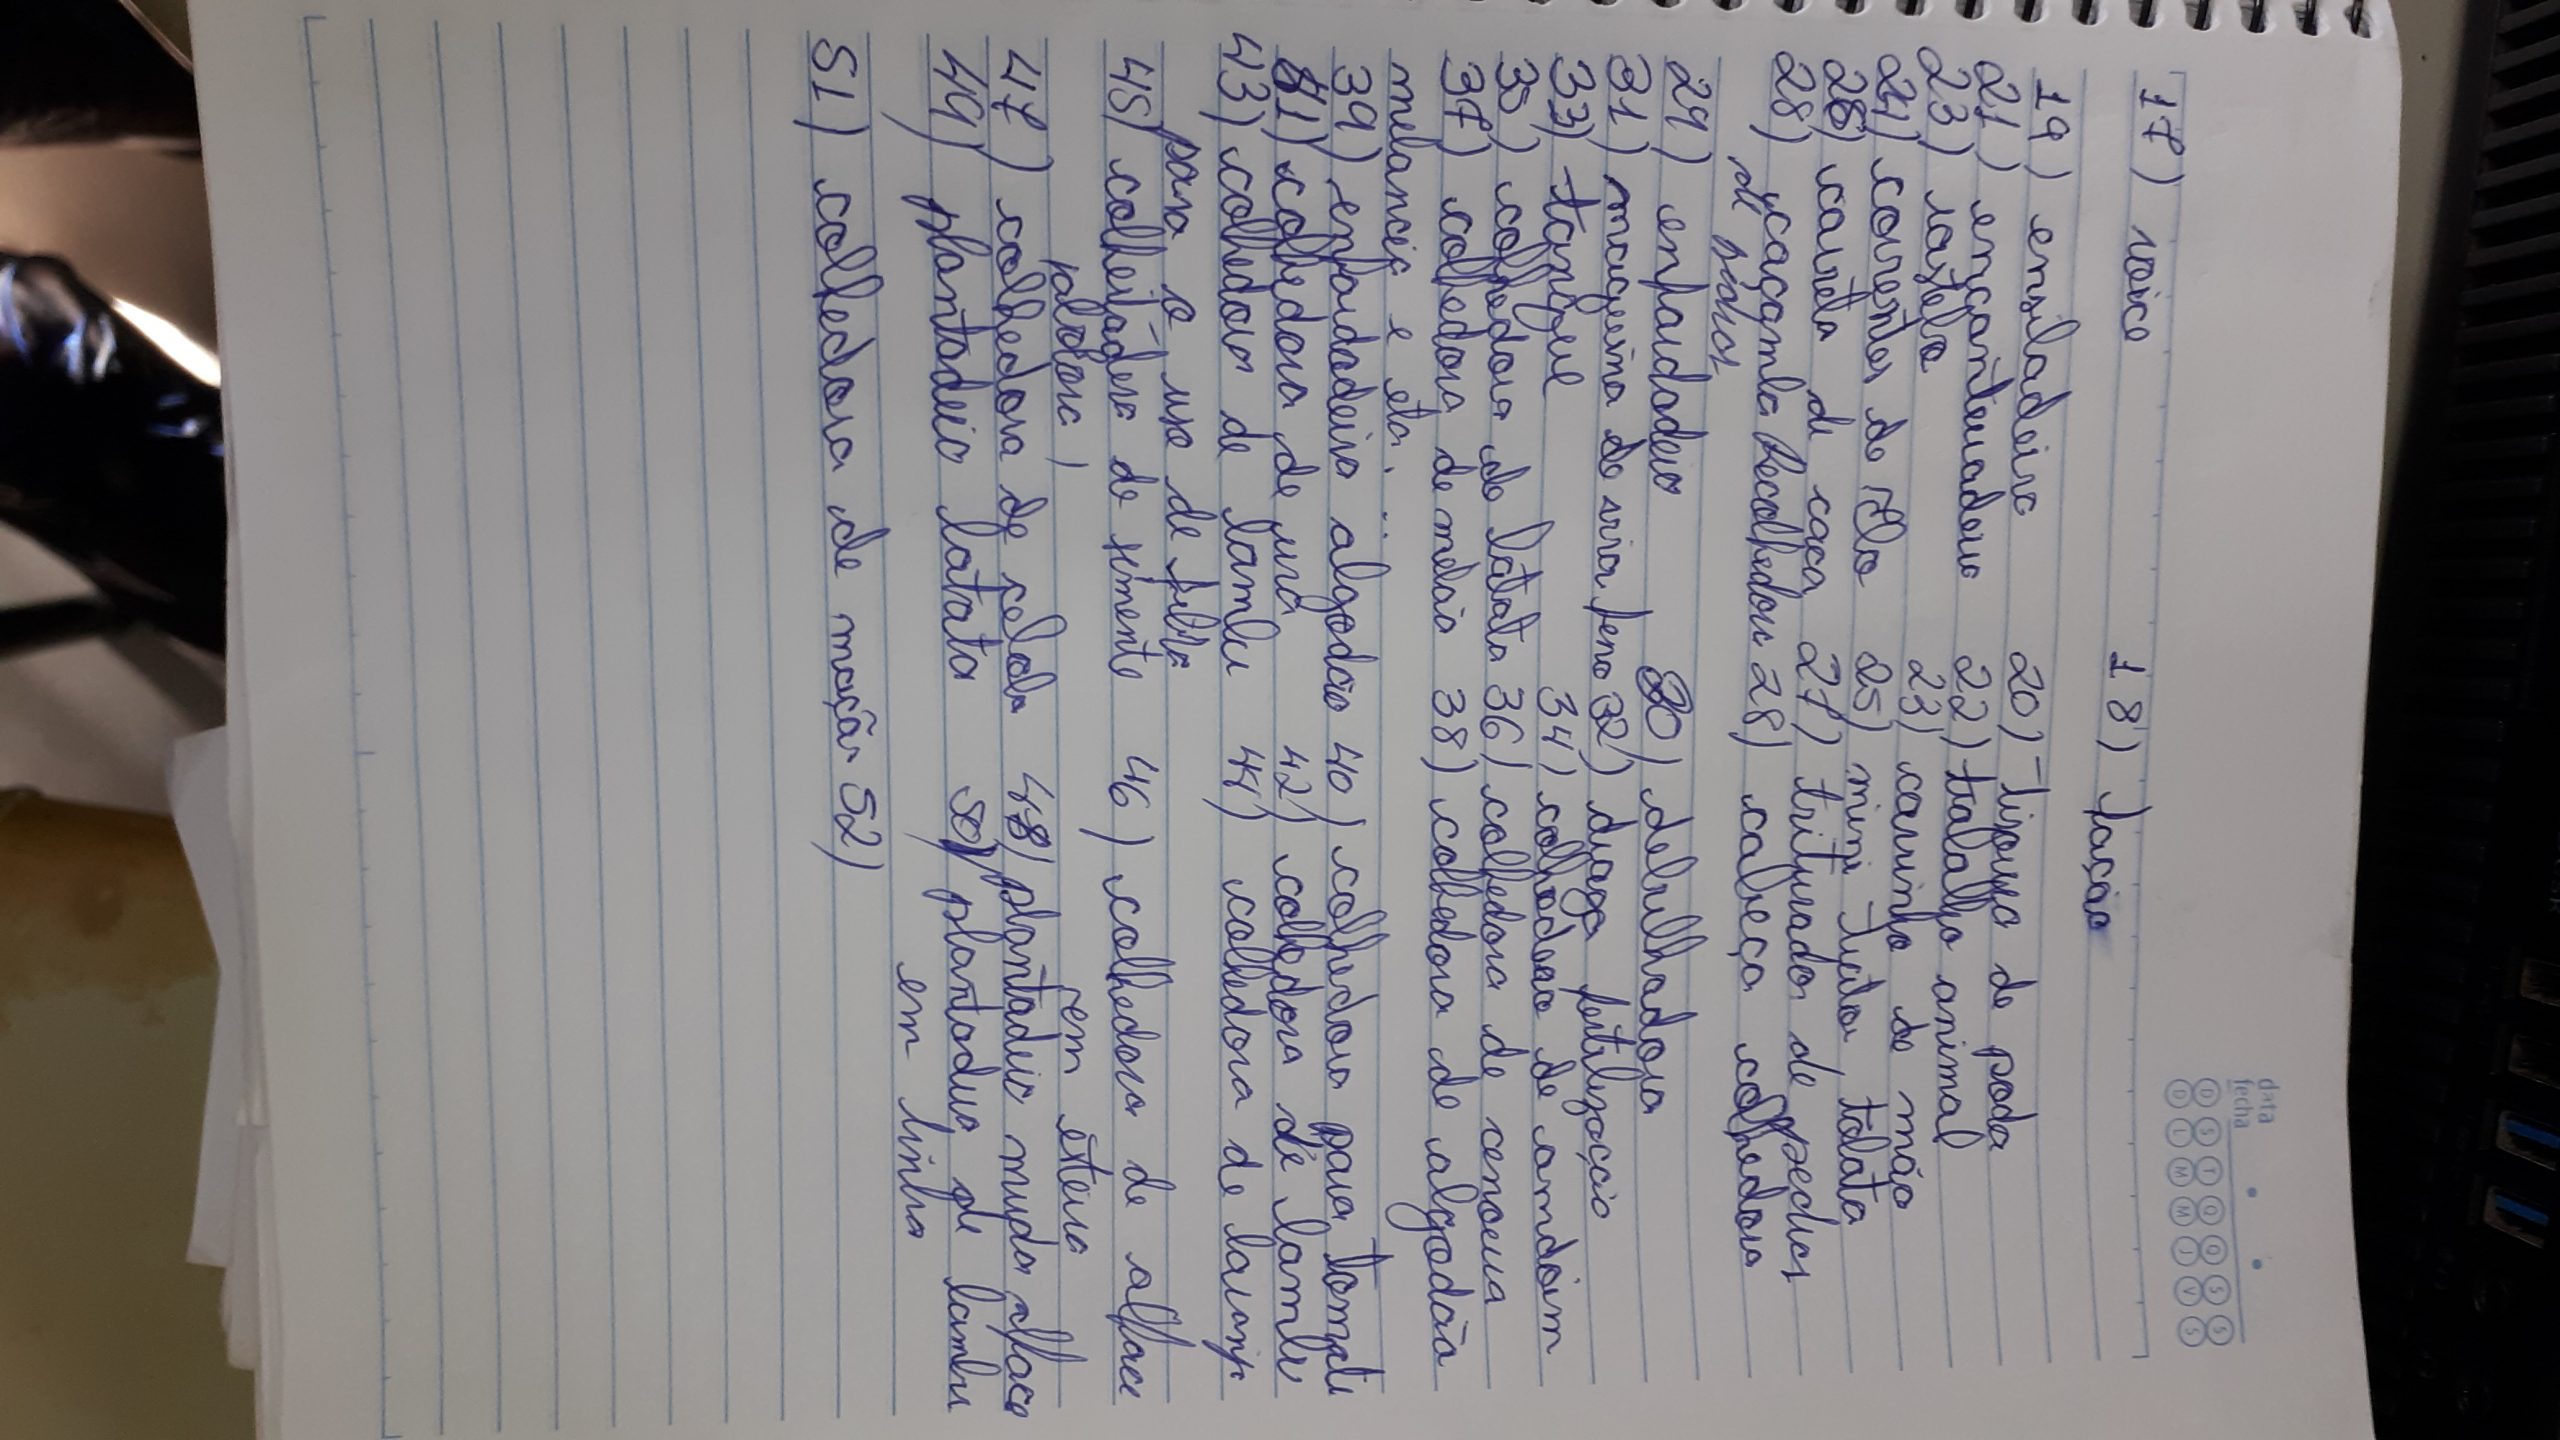 data
fecha
D S T Q Q S S
D L M M J V S
17) roice 18) facção
19) ensiladeira 20) Tisoura de poda
21) encanteradeira 22) trabalho animal
23) rastelo 23) carrinho de mão
24) correntes de rolo 25) mini trator, tobata
26) carreta de caça 27) triturador de pedras
28) caçamba Recolhedora 28) cabeça colhedora
de pinhos
29) enfardadeira 30) debulhadora
31) maquina de sira feno 32) draga fertilização
33) tanque 34) colhedora de amndoim
35) colhedora de batata 36) colhedora de cenoura
37) colhedora de melão 38) colhedora de algodão
melancia e eta.
39) enfardadeira algodão 40) colhedora para tomate
41) colhedora de uva 42) colhedora de bambu
43) colhedora de bambu 44) colhedora de laranja
para o uso de fibra
45) colheitadera de semente 46) colhedora de alface
abobora) sem esteira
47) colhedora de cebola 48) plantadeira mudas alface
49) plantadeira batata 50) plantadeira de bambu
em linha
51) colhedora de maçã 52)